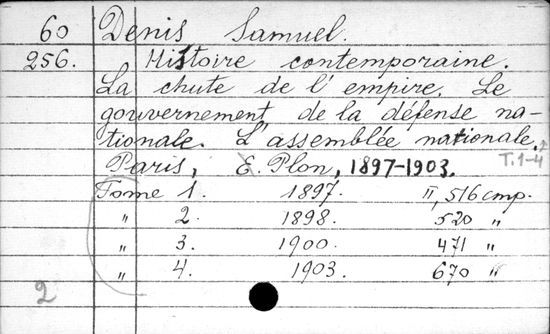 60 Denis Samuel.
256. Histoire contemporaine.
La chute de l'empire. Le
gouvernement de la défense na-
tionale. L'assemblée nationale.
Paris, E. Plon, 1897-1903.
T. 1-4
Tome 1. 1897. II, 516 cmp.
" 2. 1898. 520 "
" 3. 1900. 471 "
" 4. 1903. 670 "
2